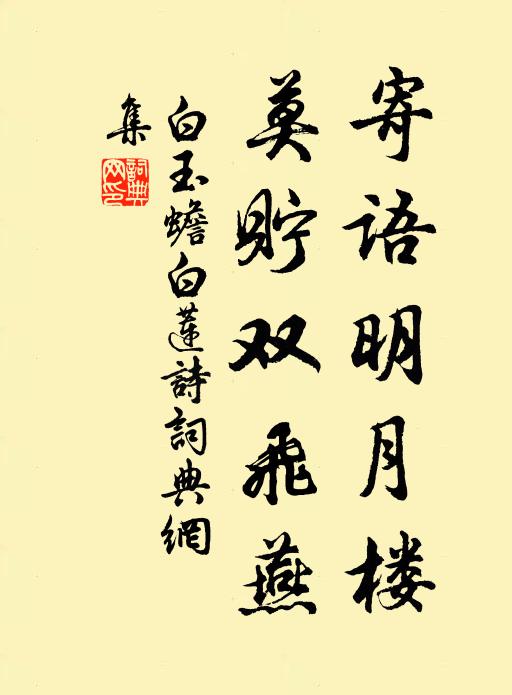 寄语明月楼
莫贮双飞燕
白玉蟾白莲詩詞典網
集
詞典
网印